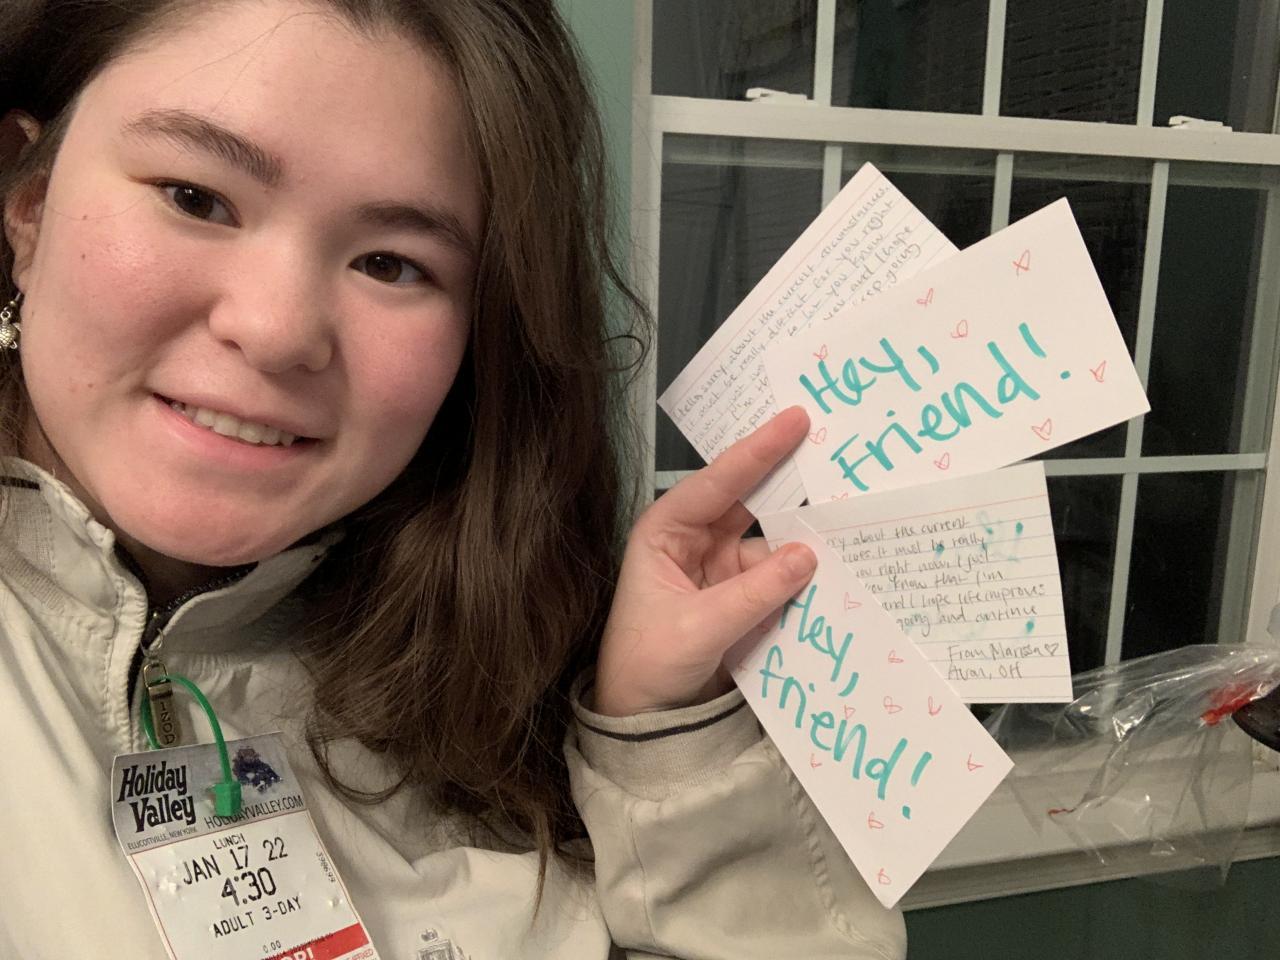 Hello, sorry about the current circumstances.
it must be really difficult for you right
now. I just
to let you know
that I'm th
you and I hope
improve
keep going
Hey,
Friend!
rry about the current
nces. It must be really
you right now. I just
you know that I'm
and I hope life improves
going and continue
From Marissa♡
Avon, OH
Hey,
friend!
IZOD
Holiday
Valley
ELLICOTTVILLE, NEW YORK
HOLIDAYVALLEY.COM
LUNCH
JAN 17 22
4:30
ADULT 3-DAY
0.00